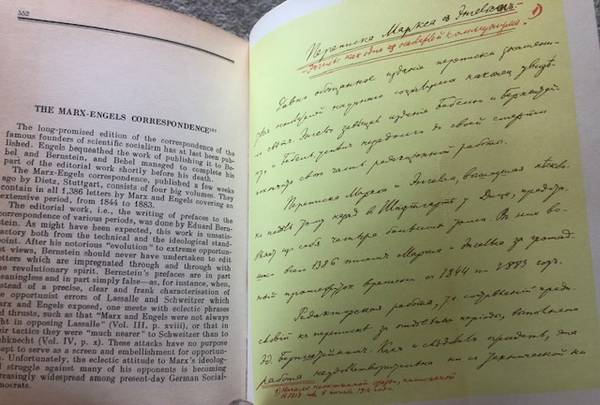 552
THE MARX-ENGELS CORRESPONDENCE
The long-promised edition of the correspondence of the
famous founders of scientific socialism has at last been pub-
lished. Engels bequeathed the work of publishing it to Be-
bel and Bernstein, and Bebel managed to complete his
part of the editorial work shortly before his death.
The Marx-Engels correspondence, published a few weeks
ago by Dietz, Stuttgart, consists of four big volumes. They
contain in all 1,386 letters by Marx and Engels covering an
extensive period, from 1844 to 1883.
The editorial work, i.e., the writing of prefaces to the
correspondence of various periods, was done by Eduard Bern-
stein. As might have been expected, this work is unsatis-
factory both from the technical and the ideological stand-
point. After his notorious "evolution" to extreme opportu-
nist views, Bernstein should never have undertaken to edit
letters which are impregnated through and through with
the revolutionary spirit. Bernstein's prefaces are in part
meaningless and in part simply false—as, for instance, when,
instead of a precise, clear and frank characterisation of
the opportunist errors of Lassalle and Schweitzer which
Marx and Engels exposed, one meets with eclectic phrases
and thrusts, such as that "Marx and Engels were not always
right in opposing Lassalle" (Vol. III, p. xviii), or that in
their tactics they were "much nearer" to Schweitzer than to
Liebknecht (Vol. IV, p. x). These attacks have no purpose
except to serve as a screen and embellishment for opportun-
ism. Unfortunately, the eclectic attitude to Marx's ideolog-
ical struggle against many of his opponents is becoming
increasingly widespread among present-day German Social-
Democrats.
Переписка Маркса с Энгельсом
Энгельс как один из основателей коммунизма 1)
Давно обещанное издание переписки знамени-
тых основателей научного социализма наконец увиде-
ло свет. Энгельс завещал издание Бебелю и Бернштей-
ну, и Бебель успел незадолго до своей смерти
закончить свою часть редакционной работы.
Переписка Маркса и Энгельса, вышедшая несколь-
ко недель тому назад в Штутгарте у Дица, представ-
ляет из себя четыре больших тома. В них во-
шло всего 1386 писем Маркса и Энгельса за громад-
ный промежуток времени с 1844 по 1883 год.
Редакторская работа, т.е. составление преди-
словий к переписке за отдельные периоды, выполнена
Эд. Бернштейном. Как и следовало ожидать, эта
работа неудовлетворительна ни с технической ни